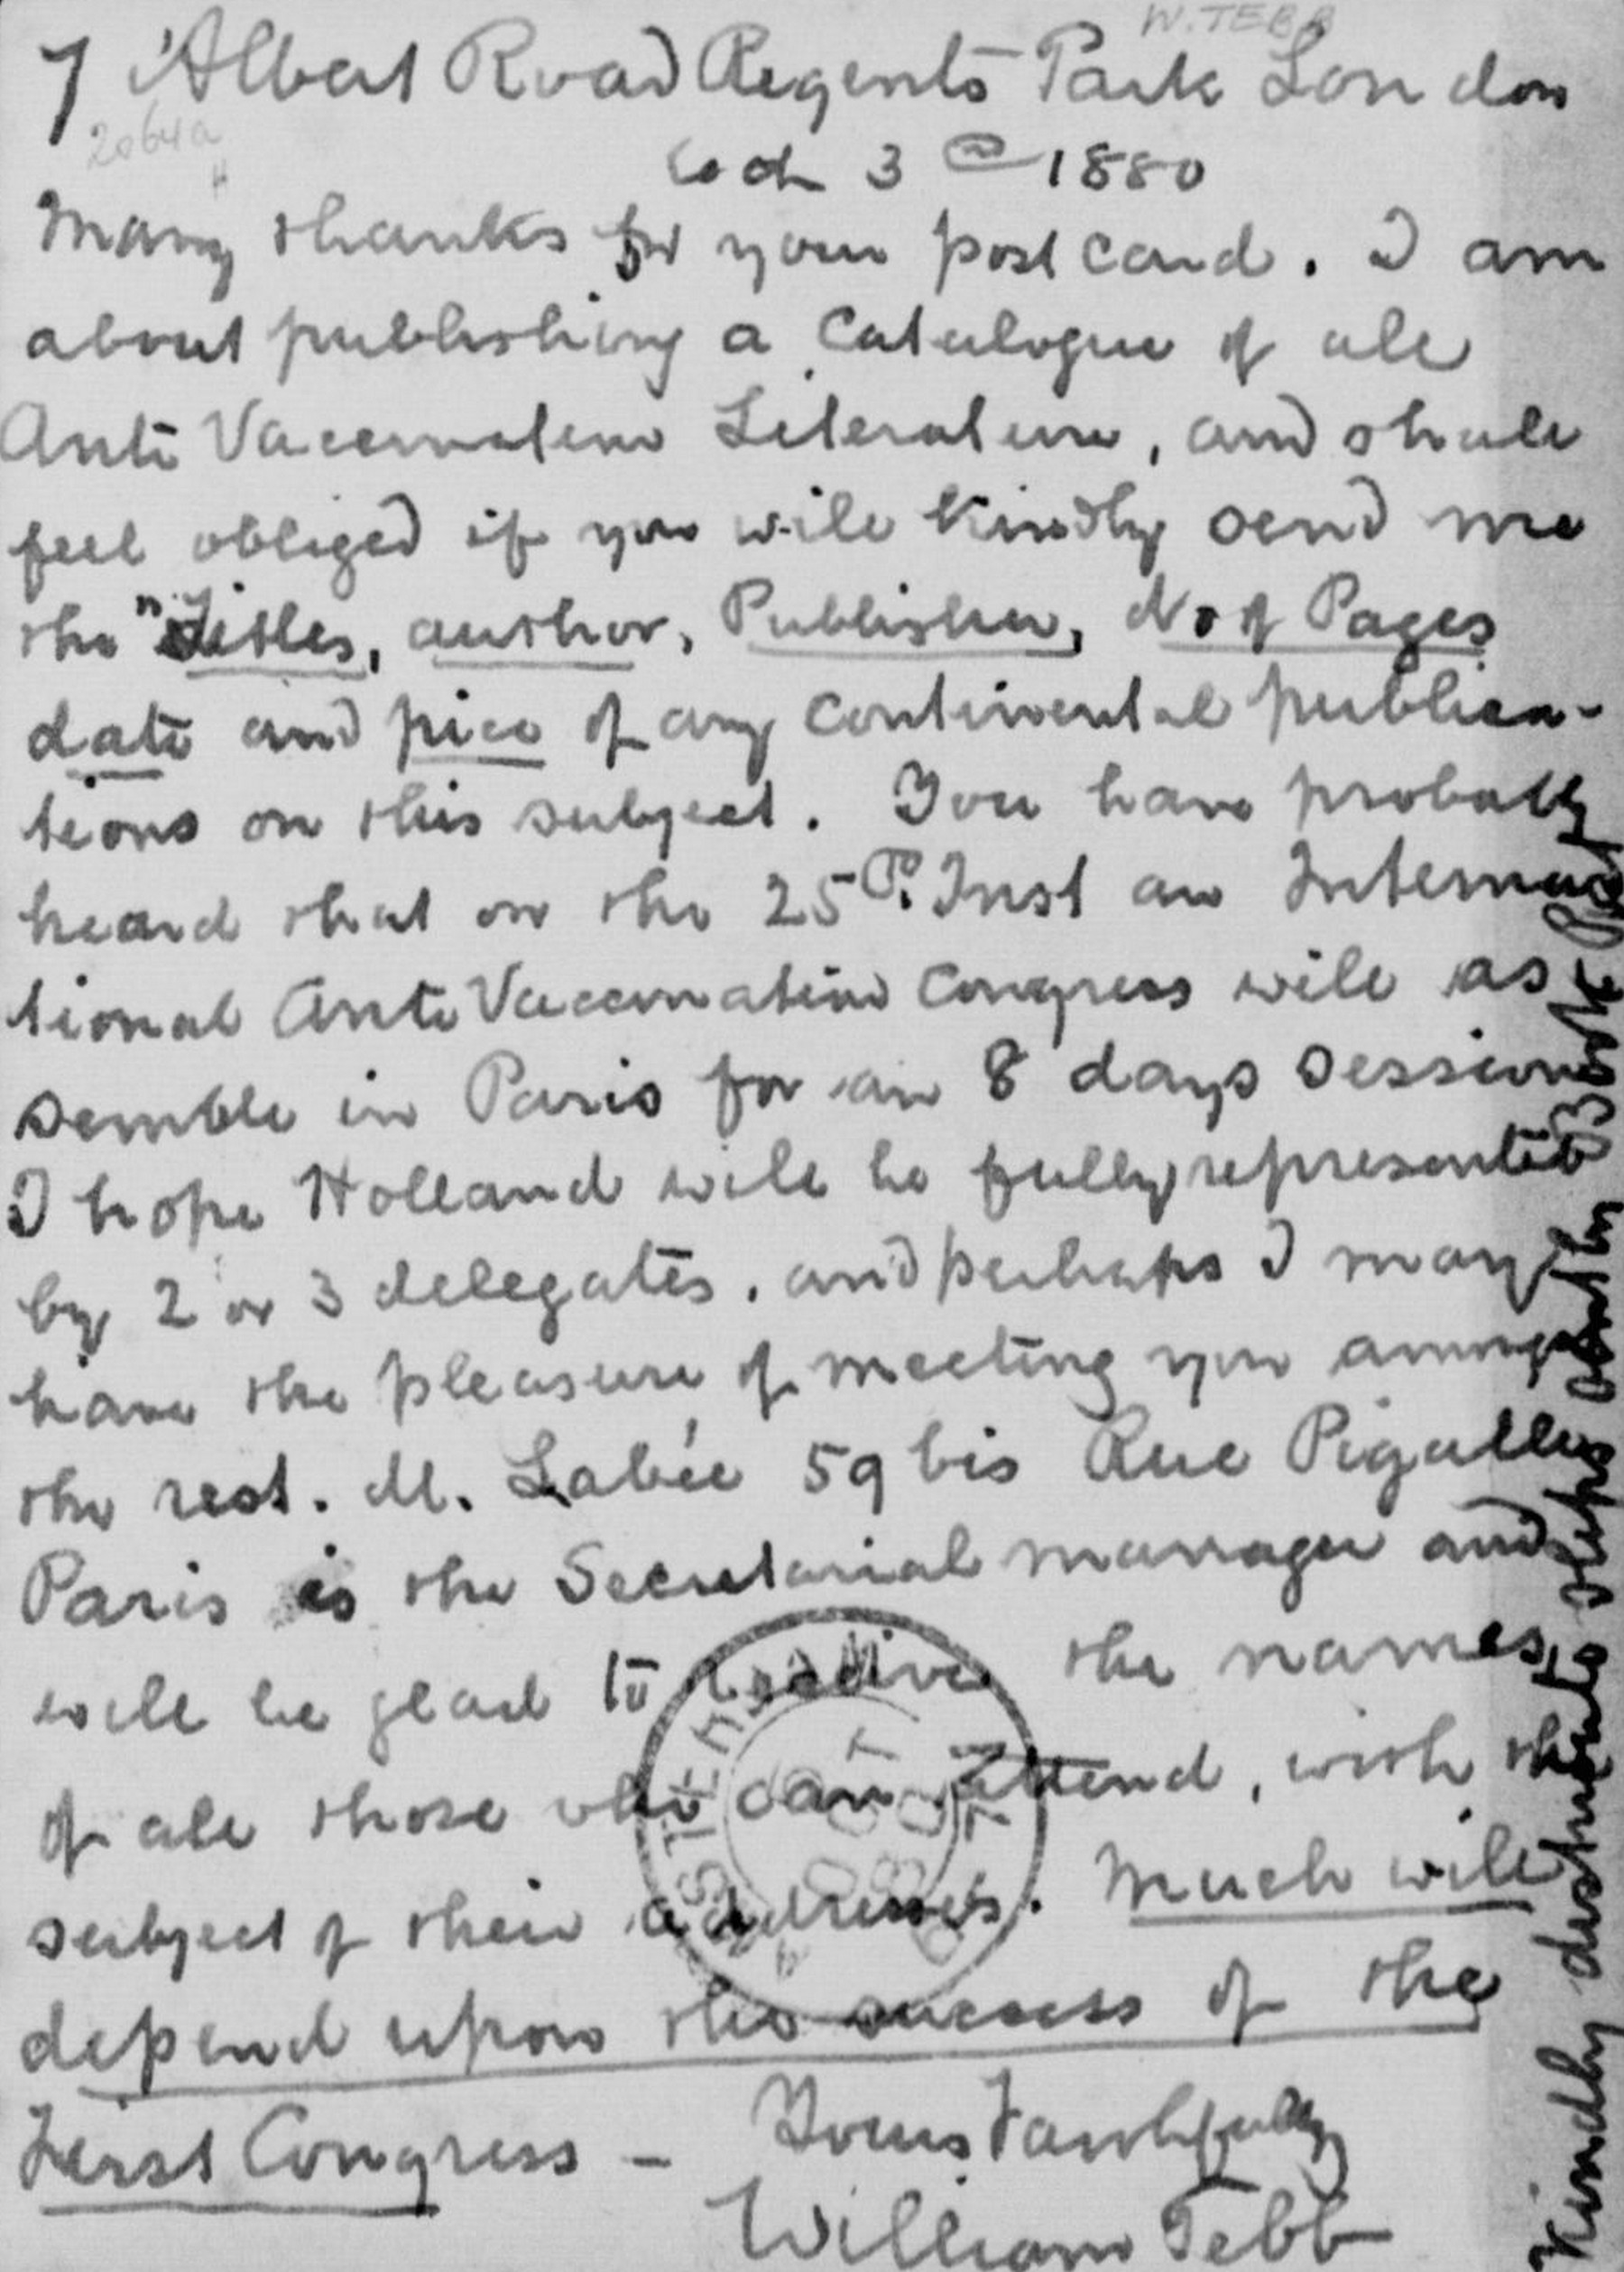 W. TEBB
7 Albert Road Regents Park London
2064a
Oct 3 1880
Many thanks for your post card. I am
about publishing a Catalogue of all
Anti Vaccination Literature, and shall
feel obliged if you will kindly send me
the "Titles, author, Publisher, No of Pages
date and price of any Continental publica-
tions on this subject. You have probably
heard that on the 25th Inst an Interna
tional Anti Vaccination Congress will as
semble in Paris for an 8 days session
I hope Holland will be fully represented
by 2 or 3 delegates. and perhaps I may
have the pleasure of meeting you among
the rest. M. Labée 59 bis Rue Pigalle
Paris is the Secretarial manager and
will be glad to receive the names
of all those who can attend, with the
subject of their addresses. Much will
depend upon the success of the
First Congress - Yours Faithfully
William Tebb
Kindly distribute slips sent by Book Post